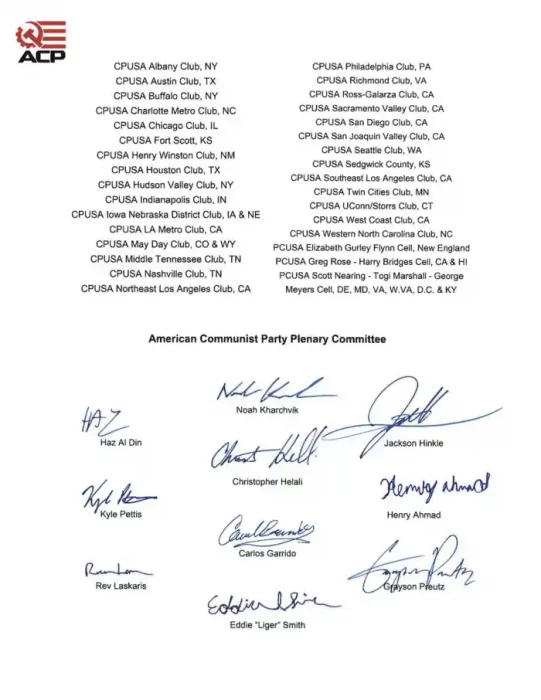 ACP
CPUSA Albany Club, NY
CPUSA Austin Club, TX
CPUSA Buffalo Club, NY
CPUSA Charlotte Metro Club, NC
CPUSA Chicago Club, IL
CPUSA Fort Scott, KS
CPUSA Henry Winston Club, NM
CPUSA Houston Club, TX
CPUSA Hudson Valley Club, NY
CPUSA Indianapolis Club, IN
CPUSA Iowa Nebraska District Club, IA & NE
CPUSA LA Metro Club, CA
CPUSA May Day Club, CO & WY
CPUSA Middle Tennessee Club, TN
CPUSA Nashville Club, TN
CPUSA Northeast Los Angeles Club, CA
CPUSA Philadelphia Club, PA
CPUSA Richmond Club, VA
CPUSA Ross-Galarza Club, CA
CPUSA Sacramento Valley Club, CA
CPUSA San Diego Club, CA
CPUSA San Joaquin Valley Club, CA
CPUSA Seattle Club, WA
CPUSA Sedgwick County, KS
CPUSA Southeast Los Angeles Club, CA
CPUSA Twin Cities Club, MN
CPUSA UConn/Storrs Club, CT
CPUSA West Coast Club, CA
CPUSA Western North Carolina Club, NC
PCUSA Elizabeth Gurley Flynn Cell, New England
PCUSA Greg Rose - Harry Bridges Cell, CA & HI
PCUSA Scott Nearing - Togi Marshall - George
Meyers Cell, DE, MD, VA, W.VA, D.C. & KY
American Communist Party Plenary Committee
HAZ
Haz Al Din
Noah Kharchvik
Jackson Hinkle
Christopher Helali
Kyle Pettis
Henry Ahmad
Henry Ahmad
Carlos Garrido
Rev Laskaris
Grayson Preutz
Eddie "Liger" Smith